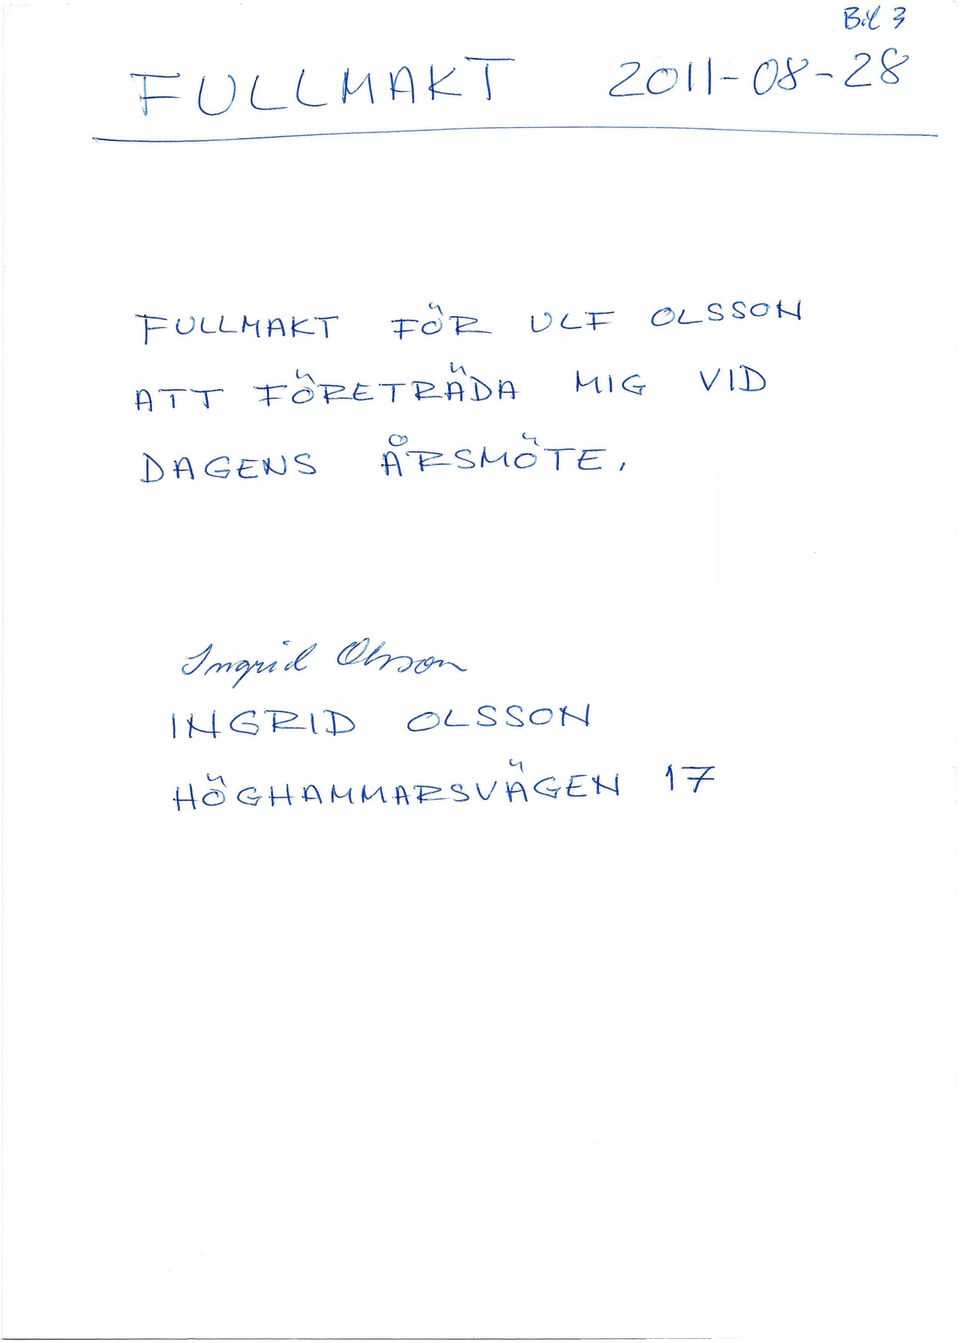 Bil 3
FULLMAKT 2011-08-28
FULLMAKT FÖR ULF OLSSON
ATT FÖRETRÄDA MIG VID
DAGENS ÅRSMÖTE.
Ingrid Olsson
INGRID OLSSON
HÖGHAMMARSVÄGEN 17